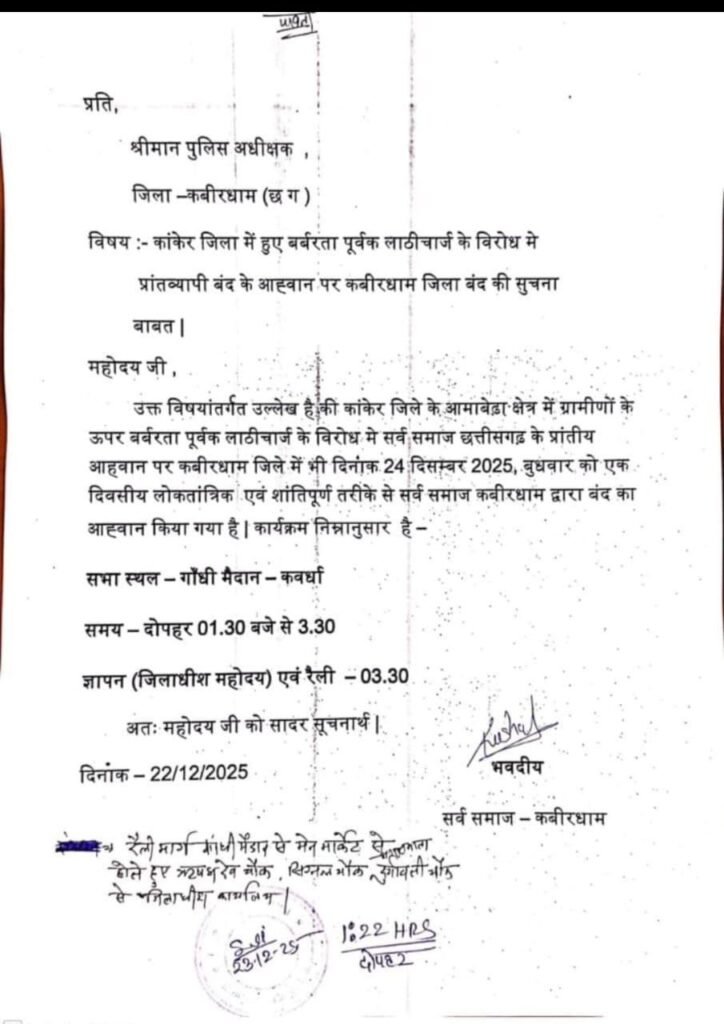 पावती
प्रति,
श्रीमान पुलिस अधीक्षक ,
जिला –कबीरधाम (छ ग )
विषय :- कांकेर जिला में हुए बर्बरता पूर्वक लाठीचार्ज के विरोध मे
प्रांतव्यापी बंद के आह्वान पर कबीरधाम जिला बंद की सुचना
बाबत |
महोदय जी ,
उक्त विषयांतर्गत उल्लेख है की कांकेर जिले के आमाबेड़ा क्षेत्र में ग्रामीणों के
ऊपर बर्बरता पूर्वक लाठीचार्ज के विरोध मे सर्व समाज छत्तीसगढ़ के प्रांतीय
आहवान पर कबीरधाम जिले में भी दिनांक 24 दिसम्बर 2025, बुधवार को एक
दिवसीय लोकतांत्रिक एवं शांतिपूर्ण तरीके से सर्व समाज कबीरधाम द्वारा बंद का
आह्वान किया गया है | कार्यक्रम निम्नानुसार है –
सभा स्थल – गाँधी मैदान – कवर्धा
समय – दोपहर 01.30 बजे से 3.30
ज्ञापन (जिलाधीश महोदय) एवं रैली – 03.30
अतः महोदय जी को सादर सूचनार्थ |
Kushal
दिनांक – 22/12/2025
भवदीय
सर्व समाज – कबीरधाम
रैली मार्ग गांधी मैदान से मेन मार्केट से
होते हुए ऋषभ देव चौक, सिग्नल चौक, दुर्गावती चौक
से जिलाधीश कार्यालय |
23-12-25
1:22 HRS
दोपहर